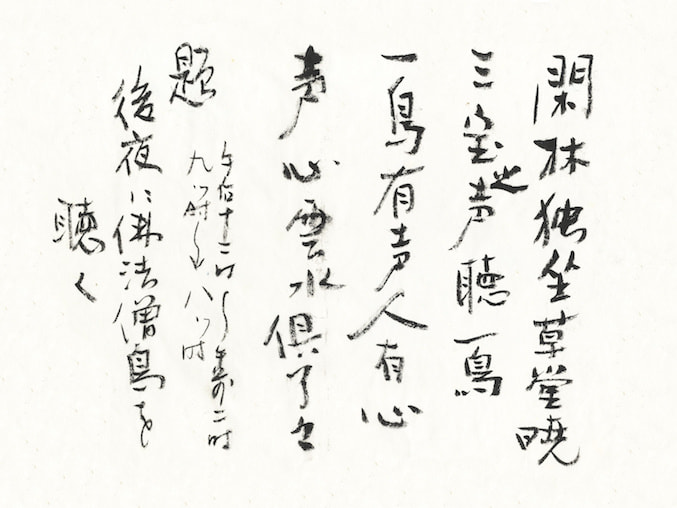 閑林独坐草堂暁
三宝之声聴一鳥
一鳥有声人有心
声心雲水倶了々
題
午后十二時ゟ午前二時
九ツ時ゟ八ツ時
後夜ニ佛法僧鳥を
聴く